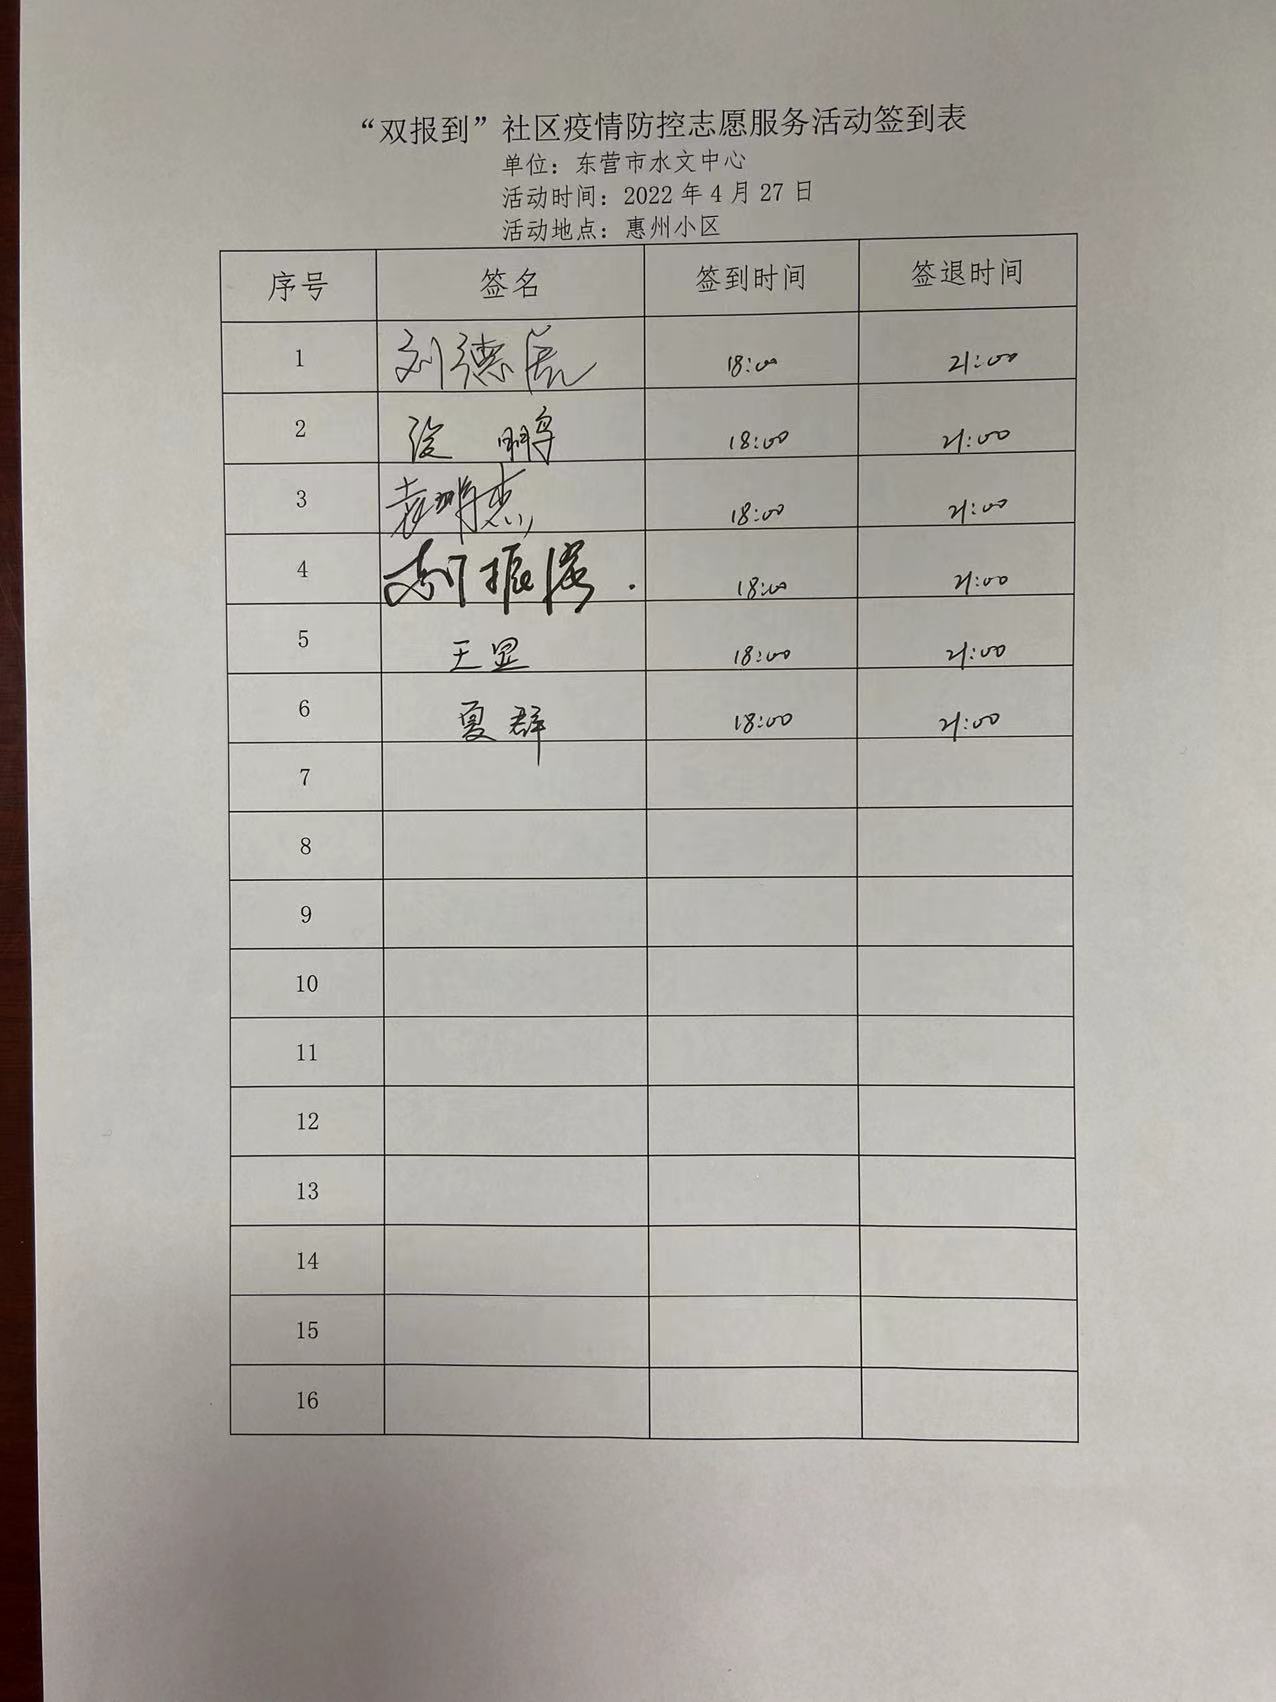 “双报到”社区疫情防控志愿服务活动签到表
单位：东营市水文中心
活动时间：2022 年 4 月 27 日
活动地点：惠州小区
序号 签名 签到时间 签退时间
1 刘德 18:00 21:00
2 鹏 18:00 21:00
3 袁明杰 18:00 21:00
4 振 18:00 21:00
5 王显 18:00 21:00
6 夏群 18:00 21:00
7
8
9
10
11
12
13
14
15
16